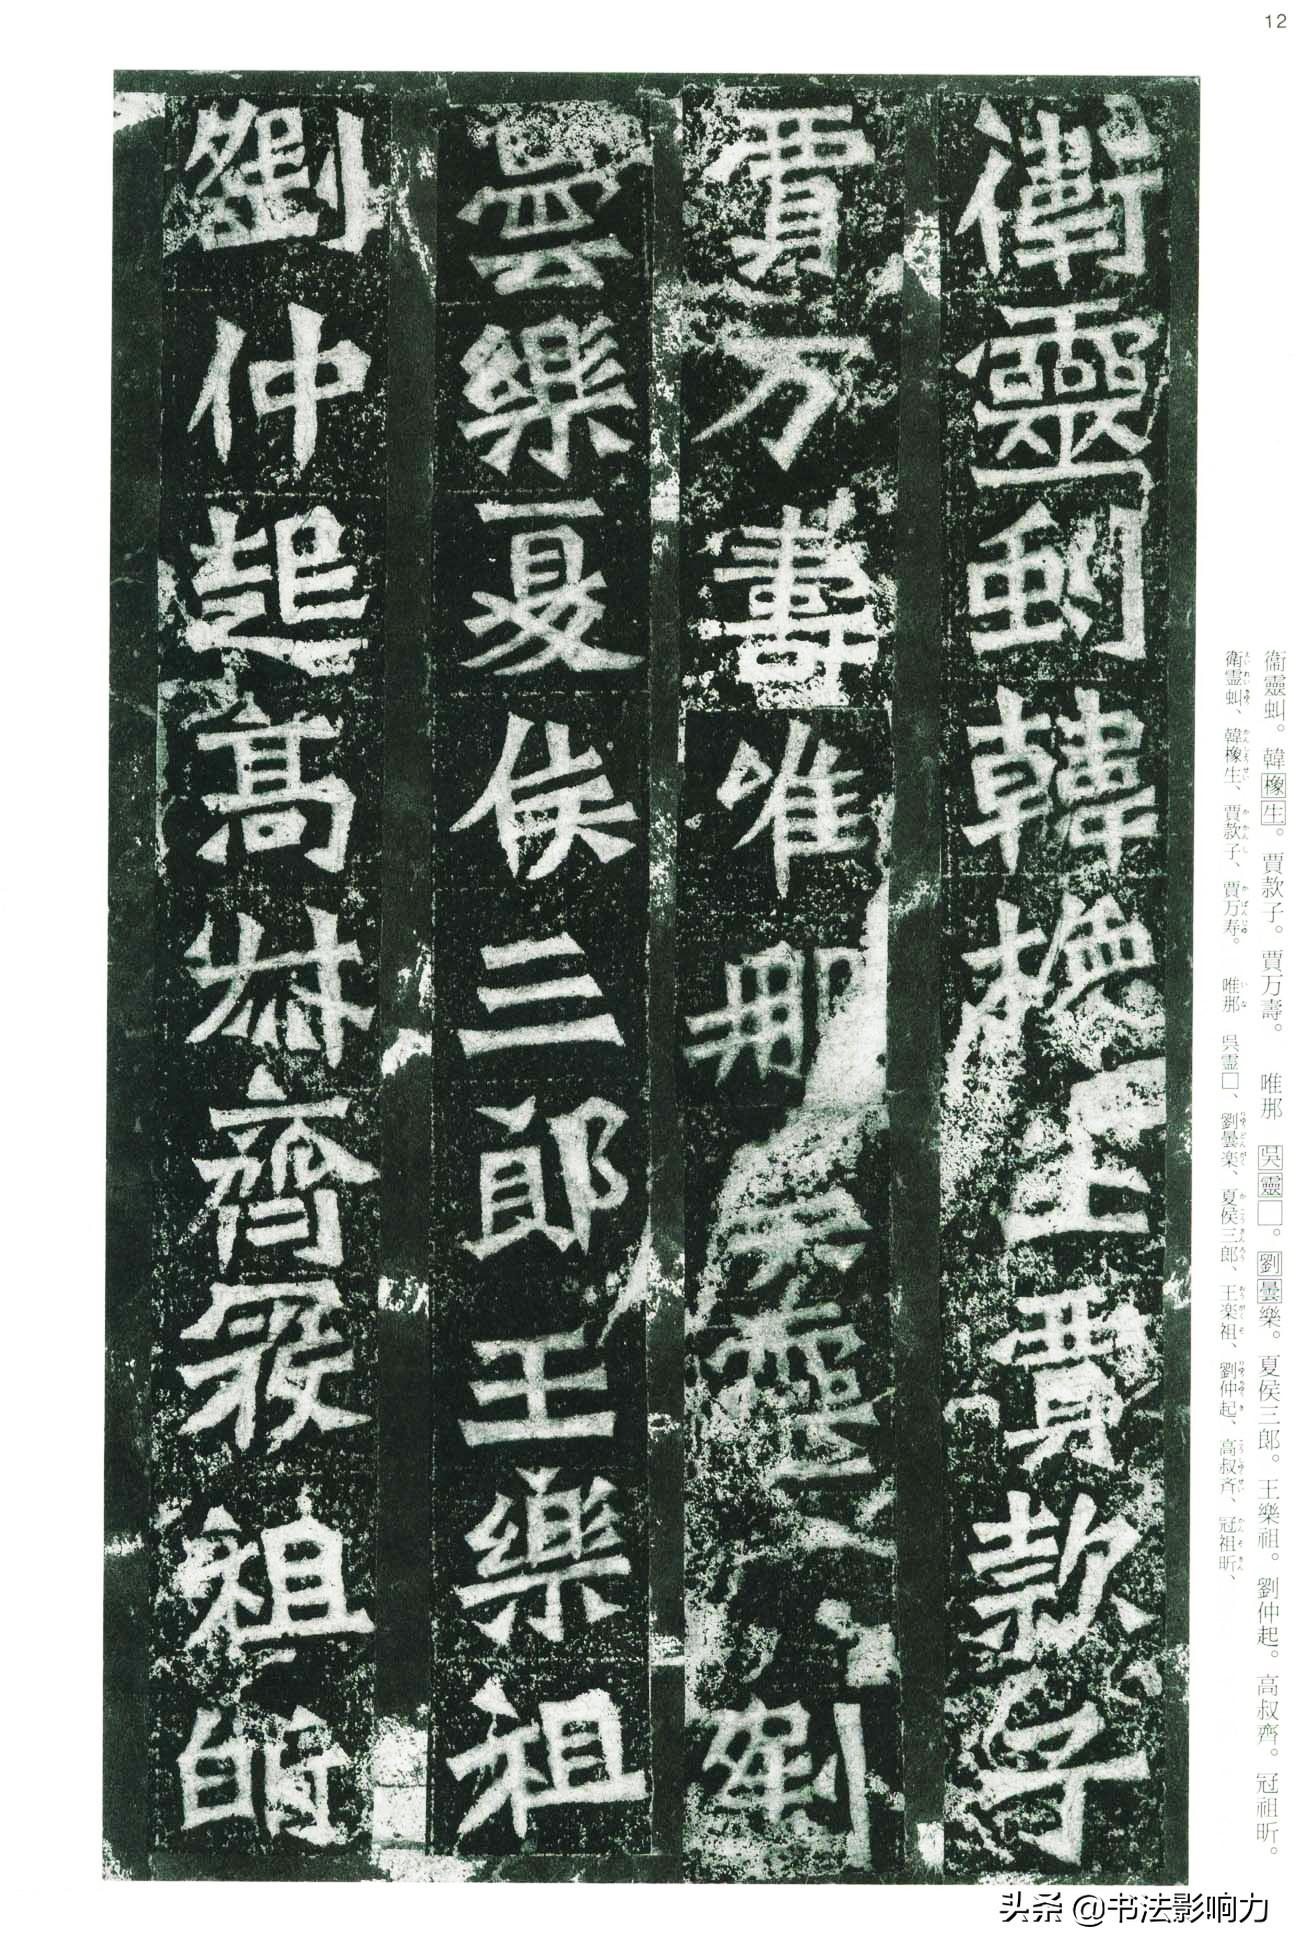 12
衛靈虯韓橡生賈款子
賈万壽唯那吳靈劉
曇樂夏侯三郎王樂祖
劉仲起高叔齊冠祖昕
衞靈虯。韓橡生。賈款子。賈万壽。 唯那 吳靈□。劉曇樂。夏侯三郎。王樂祖。劉仲起。高叔齊。冠祖昕。
衛霊虯、韓橡生、賈款子、賈万寿。 唯那 呉霊□、劉曇楽、夏侯三郎、王楽祖、劉仲起、高叔斉、冠祖昕、
头条 @书法影响力